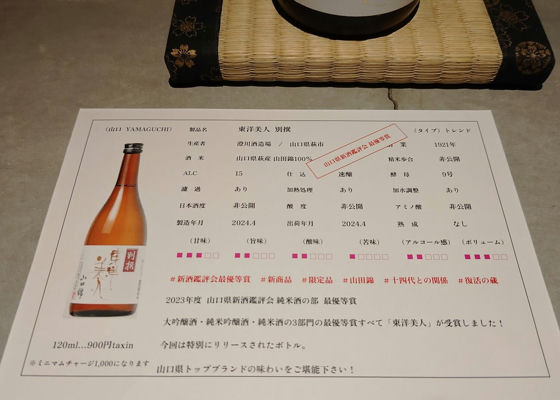 (山口 YAMAGUCHI) 製品名 東洋美人 別撰 (タイプ) トレンド
生産者 澄川酒造場 / 山口県萩市 業 1921年
山口県新酒鑑評会 最優等賞
酒米 山口県萩産 山田錦100% 精米歩合 非公開
ALC 15 仕込 速醸 酵母 9号
濾過 あり 加熱処理 あり 加水調整 あり
日本酒度 非公開 酸度 非公開 アミノ酸 非公開
製造年月 2024.4 出荷年月 2024.4 熟成 なし
(甘味) (旨味) (酸味) (苦味) (アルコール感) (ボリューム)
#新酒鑑評会最優等賞 #新商品 #限定品 #山田錦 #十四代との関係 #復活の蔵
2023年度 山口県新酒鑑評会 純米酒の部 最優等賞
大吟醸酒・純米吟醸酒・純米酒の3部門の最優等賞すべて「東洋美人」が受賞しました!
今回は特別にリリースされたボトル。
山口県トップブランドの味わいをご堪能下さい!
別撰
東洋美人
山田錦
120ml…900円taxin
※ミニマムチャージ1,000になります